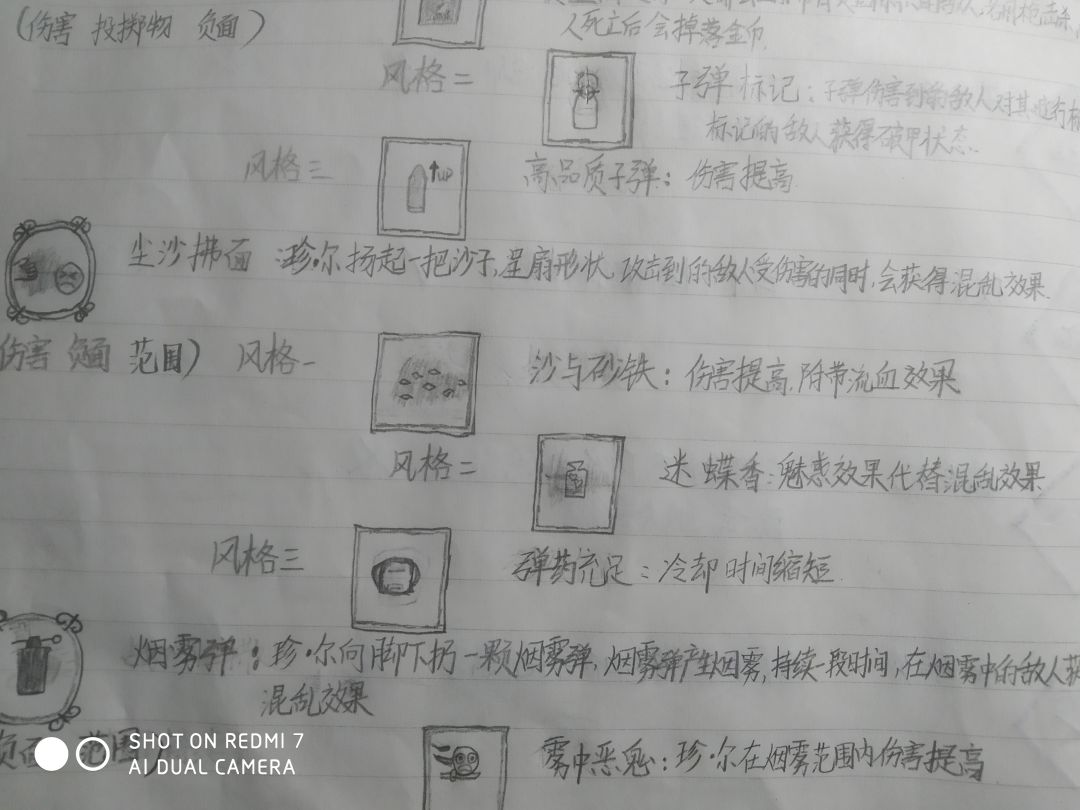 (伤害 投掷物 负面)
人死亡后会掉落金币
风格二
子弹标记:子弹伤害到的敌人对其进行标
标记的敌人获得破甲状态.
风格三
UP
高品质子弹:伤害提高.
尘沙拂面:珍·尔扬起一把沙子,呈扇形状,攻击到的敌人受伤害的同时,会获得混乱效果.
伤害 负面 范围)
风格一
沙与砂铁:伤害提高.附带流血效果
风格二
迷蝶香:魅惑效果代替混乱效果
风格三
弹药充足:冷却时间缩短.
烟雾弹:珍·尔向脚下扔一颗烟雾弹,烟雾弹产生烟雾,持续一段时间,在烟雾中的敌人获
混乱效果
负面 范围)
雾中恶鬼:珍·尔在烟雾范围内伤害提高
SHOT ON REDMI 7
AI DUAL CAMERA